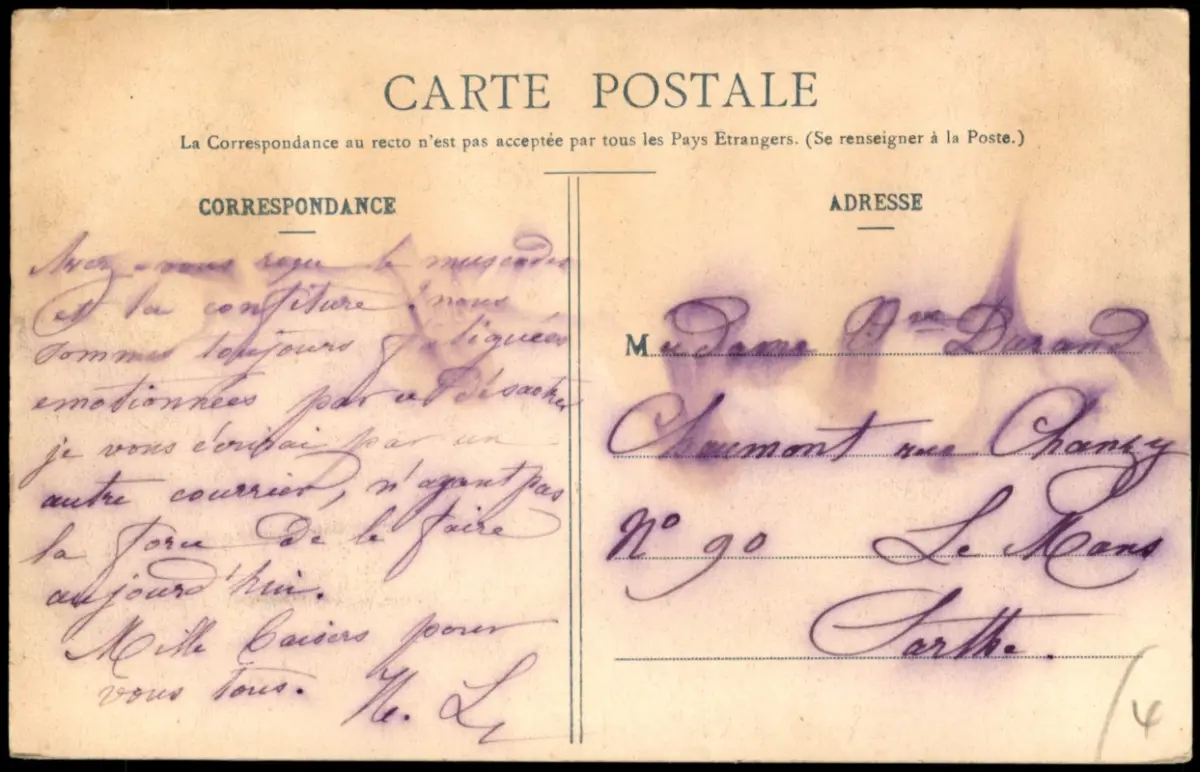 CARTE POSTALE
La Correspondance au recto n'est pas acceptée par tous les Pays Étrangers. (Se renseigner à la Poste.)
CORRESPONDANCE
Avez-vous reçu le muscades
et la confiture. nous
sommes toujours
emotionnées par ce désastre
je vous écrirai par un
autre courrier, n'ayant pas
la force de le faire
aujourd'hui.
Mille baisers pour
vous tous.
ADRESSE
Madame Vve Durand
Chaumont rue Chanzy
N° 90 Le Mans
Sarthe.
4